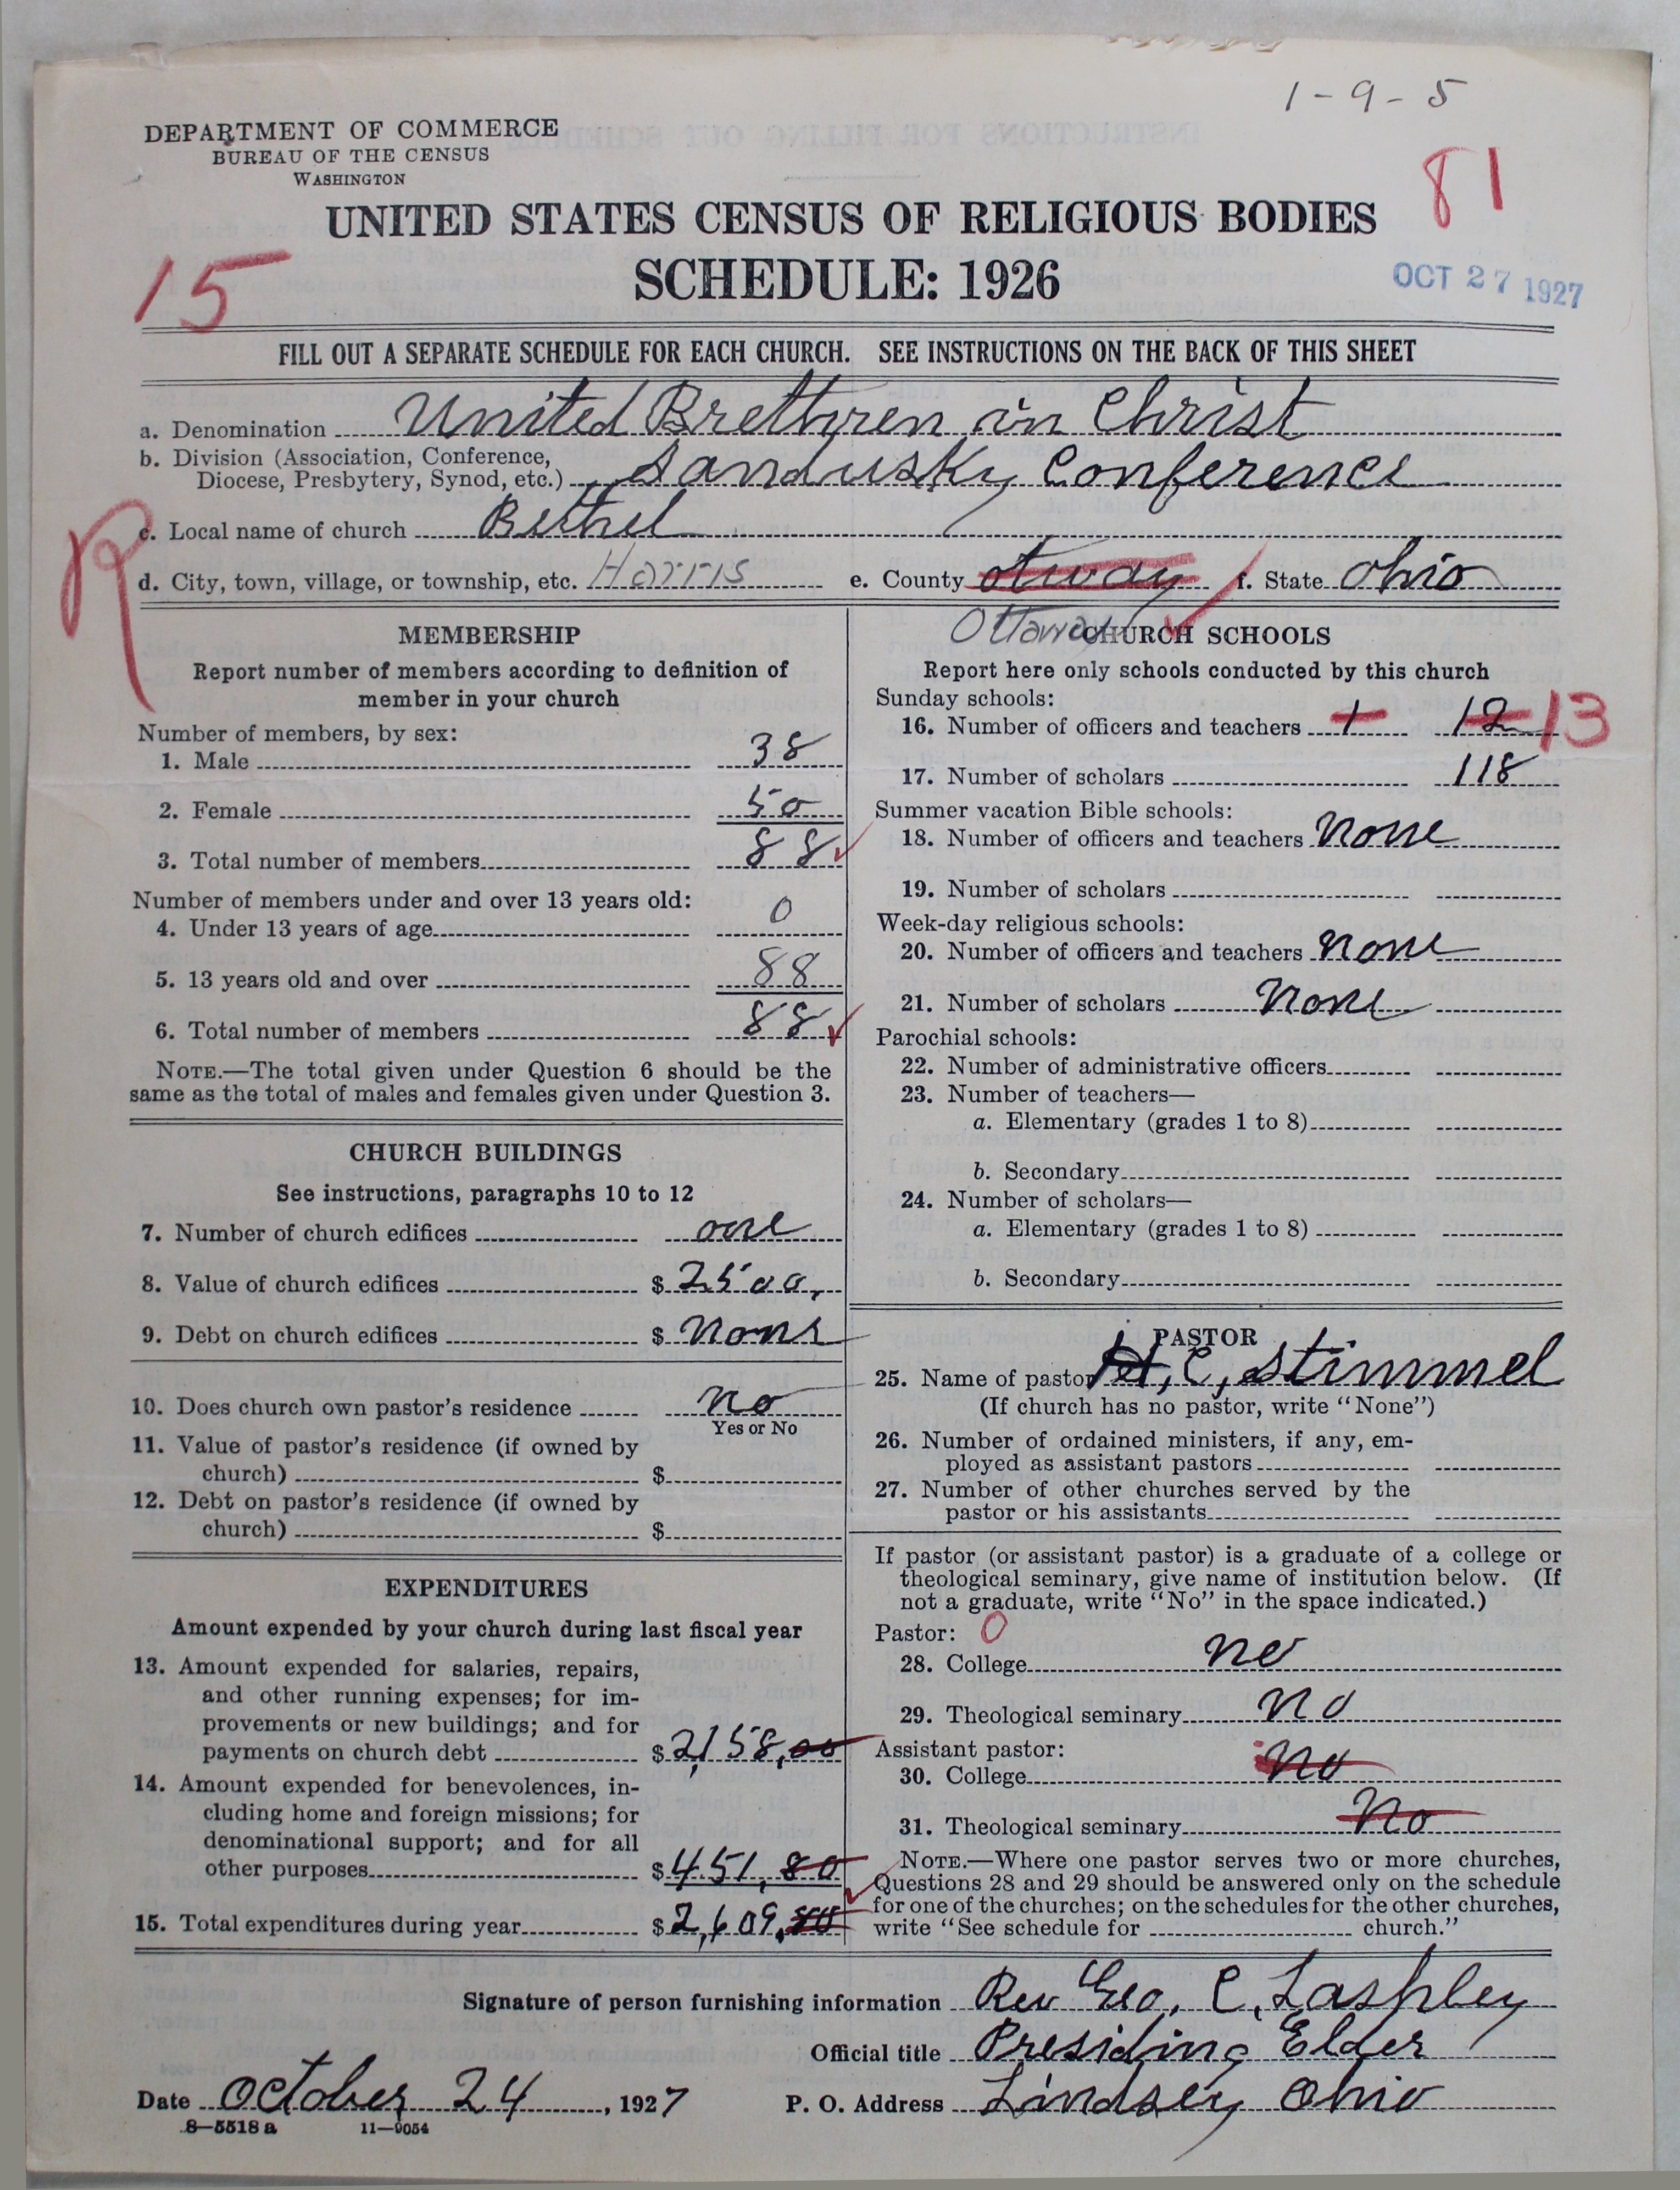 1-9-5
DEPARTMENT OF COMMERCE
BUREAU OF THE CENSUS
WASHINGTON
81
UNITED STATES CENSUS OF RELIGIOUS BODIES
15
SCHEDULE: 1926
OCT 27 1927
FILL OUT A SEPARATE SCHEDULE FOR EACH CHURCH. SEE INSTRUCTIONS ON THE BACK OF THIS SHEET
a. Denomination United Brethren in Christ
b. Division (Association, Conference,
Diocese, Presbytery, Synod, etc.) Sandusky Conference
R
c. Local name of church Bethel
d. City, town, village, or township, etc. Harris e. County Otway f. State Ohio
Ottawa
MEMBERSHIP
Report number of members according to definition of
member in your church
Number of members, by sex:
1. Male 38
2. Female 50
3. Total number of members 88
Number of members under and over 13 years old:
4. Under 13 years of age 0
5. 13 years old and over 88
6. Total number of members 88
NOTE.—The total given under Question 6 should be the
same as the total of males and females given under Question 3.
CHURCH BUILDINGS
See instructions, paragraphs 10 to 12
7. Number of church edifices one
8. Value of church edifices $ 2500,
9. Debt on church edifices $ None
10. Does church own pastor's residence no
Yes or No
11. Value of pastor's residence (if owned by
church) $
12. Debt on pastor's residence (if owned by
church) $
EXPENDITURES
Amount expended by your church during last fiscal year
13. Amount expended for salaries, repairs,
and other running expenses; for im-
provements or new buildings; and for
payments on church debt $ 2,158,00
14. Amount expended for benevolences, in-
cluding home and foreign missions; for
denominational support; and for all
other purposes $ 451,80
15. Total expenditures during year $ 2,609,80
CHURCH SCHOOLS
Report here only schools conducted by this church
Sunday schools:
16. Number of officers and teachers 1 12 13
17. Number of scholars 118
Summer vacation Bible schools:
18. Number of officers and teachers None
19. Number of scholars
Week-day religious schools:
20. Number of officers and teachers None
21. Number of scholars None
Parochial schools:
22. Number of administrative officers
23. Number of teachers—
a. Elementary (grades 1 to 8)
b. Secondary
24. Number of scholars—
a. Elementary (grades 1 to 8)
b. Secondary
PASTOR
25. Name of pastor H, C, Stimmel
(If church has no pastor, write "None")
26. Number of ordained ministers, if any, em-
ployed as assistant pastors
27. Number of other churches served by the
pastor or his assistants
If pastor (or assistant pastor) is a graduate of a college or
theological seminary, give name of institution below. (If
not a graduate, write "No" in the space indicated.)
Pastor: 0
28. College no
29. Theological seminary no
Assistant pastor:
30. College no
31. Theological seminary No
NOTE.—Where one pastor serves two or more churches,
Questions 28 and 29 should be answered only on the schedule
for one of the churches; on the schedules for the other churches,
write "See schedule for church."
Signature of person furnishing information Rev Geo, C, Lashley
Official title Presiding Elder
Date October 24, 1927 P. O. Address Lindsey Ohio
8—5518 a 11—9054